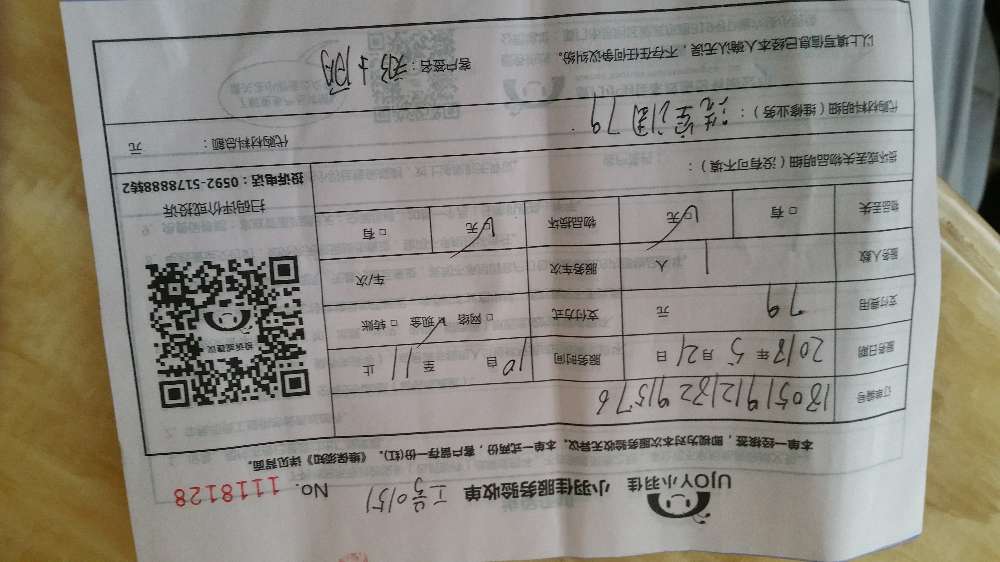 UJOY小羽佳 小羽佳服务验收单 工号0151 No. 1118128
本单一经核签，即视为对本次服务验收无异议。本单一式两份，客户留存一份(红)。《维保须知》详见背面。
订单编号 180519121322 91576
服务日期 2018年5月21日 服务时间 10自 至 11 止
支付费用 79 元 支付方式 □ 网络 ✓现金 □ 转账
服务人数 1 人 服务车次 车/次
物品丢失 □ 有 ✓无 物品损坏 ✓无 □ 有
损坏或丢失物品明细（没有可不填）：
代购材料明细（维修业务）： 79
代购材料总额： 元
以上填写信息已经本人确认无误，不存在任何争议纠纷。
客户签名：
投诉或建议
扫码评价或投诉
投诉电话：0592-5178888转2